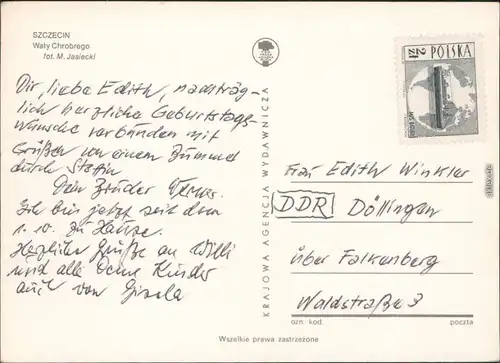 SZCZECIN
Wały Chrobrego
fot. M. Jasiecki
Dir, liebe Edith, nachträg-
lich herzliche Geburtstags-
wünsche verbunden mit
Grüßen von einem Bummel
durch Stettin
Dein Bruder
Ich bin jetzt seit dem
1. 10. zu Hause.
Herzliche Grüße an Willi
und alle Deine Kinder
auch von Gisela
KRAJOWA AGENCJA WYDAWNICZA
2 zł POLSKA
Frau Edith Winkler
DDR Döllingen
über Falkenberg
Waldstraße 3
ozn. kod. poczta
Wszelkie prawa zastrzeżone